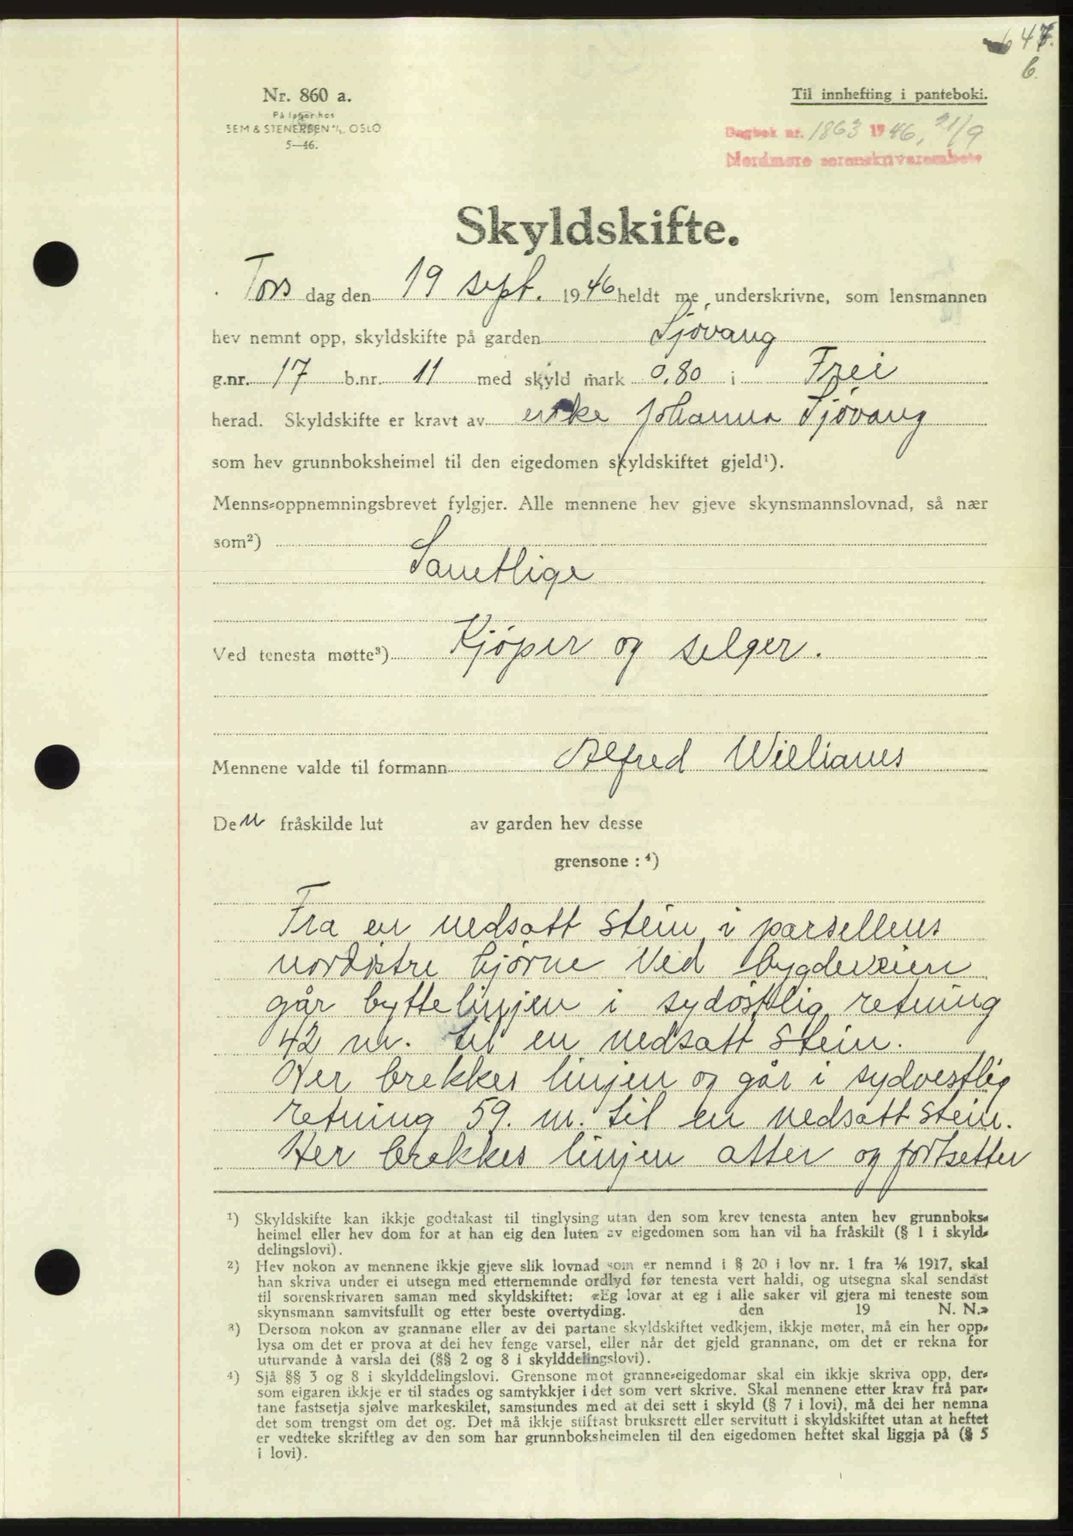 647.
6.
Nr. 860 a.
På lager hos
SEM & STENERSEN A/S, OSLO
5—46.
Til innhefting i panteboki.
Dagbok nr. 1863 1946, 21/9
Nordmøre sorenskriverembete
Skyldskifte.
Tors dag den 19 sept. 1946 heldt me underskrivne, som lensmannen
hev nemnt opp, skyldskifte på garden Sjøvang
g.nr. 17 b.nr. 11 med skyld mark 0,80 i Frei
herad. Skyldskifte er kravt av enke Johanna Sjøvang
som hev grunnboksheimel til den eigedomen skyldskiftet gjeld¹).
Menns-oppnemningsbrevet fylgjer. Alle mennene hev gjeve skynsmannslovnad, så nær
som²)
Samtlige
Ved tenesta møtte³) Kjøper og selger.
Mennene valde til formann Alfred Williams
Den fråskilde lut av garden hev desse
grensone : ⁴)
Fra en nedsatt stein i parsellens
nordøstre hjørne ved bygdeveien
går byttelinjen i sydøstlig retning
42 m. til en nedsatt stein.
Her brekkes linjen og går i sydvestlig
retning 59. m. til en nedsatt stein.
Her brekkes linjen atter og fortsetter
¹) Skyldskifte kan ikkje godtakast til tinglysing utan den som krev tenesta anten hev grunnboks-
heimel eller hev dom for at han eig den luten av eigedomen som han vil ha fråskilt (§ 1 i skyld-
delingslovi).
²) Hev nokon av mennene ikkje gjeve slik lovnad som er nemnd i § 20 i lov nr. 1 fra 1/6 1917, skal
han skriva under ei utsegn med etternemnde ordlyd før tenesta vert haldi, og utsegna skal sendast
til sorenskrivaren saman med skyldskiftet: «Eg lovar at eg i alle saker vil gjera mi teneste som
skynsmann samvitsfullt og etter beste overtyding. den 19 N. N.»
³) Dersom nokon av grannane eller av dei partane skyldskiftet vedkjem, ikkje møter, må ein her opp-
lysa om det er prova at dei hev fenge varsel, eller når det gjeld grannane, om det er rekna for
uturvande å varsla dei (§§ 2 og 8 i skylddelingslovi).
⁴) Sjå §§ 3 og 8 i skylddelingslovi. Grensone mot granne-eigedomar skal ein ikkje skriva opp, der-
som eigaren ikkje er til stades og samtykkjer i det som vert skrive. Skal mennene etter krav frå par-
tane fastsetja sjølve markeskilet, samstundes med at dei sett i skyld (§ 7 i lovi), må dei her nemna
det som trengst om det og. Det må ikkje stiftast bruksrett eller servitutt i skyldskiftet utan at heftet
er vedteke skriftleg av den som har grunnboksheimelen til den eigedomen heftet skal liggja på (§ 5
i lovi).